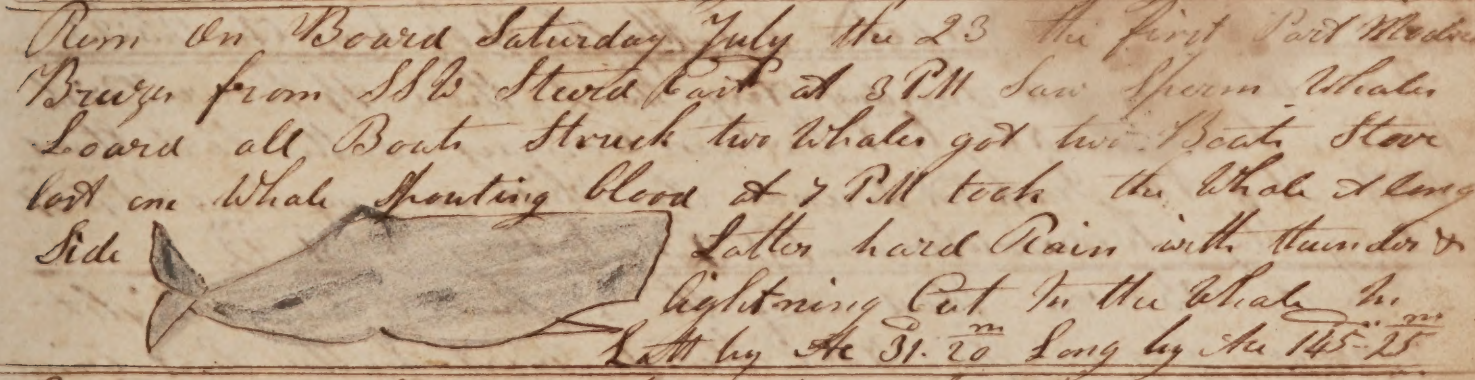 Rem On Board Saturday July the 23 the first Part Moder
Breezes from SSW Steerd East at 3 PM Saw Sperm Whales
Loard all Boats Struck two Whales got two Boats Stove
lost one Whale Spouting blood at 7 PM took the Whale A long
Side Latter hard Rain with thunder &
lightning Cut In the Whale In
Latt by Ac 31.20 m Long by Ac 145-25 m